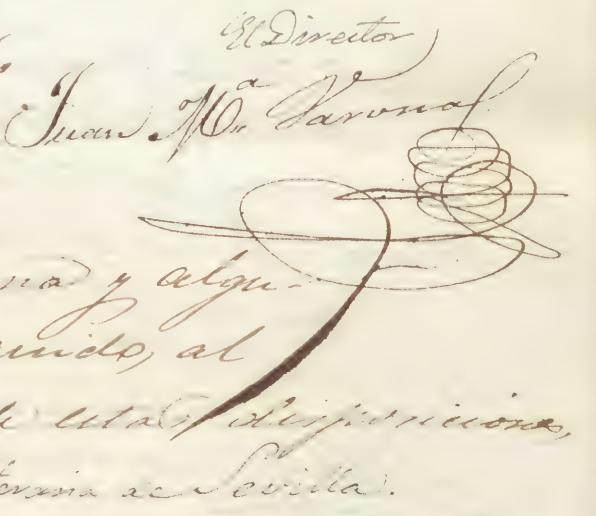 El Director
Juan M.ª Varona
y algu-
al
de estas disposiciones,
de Sevilla.